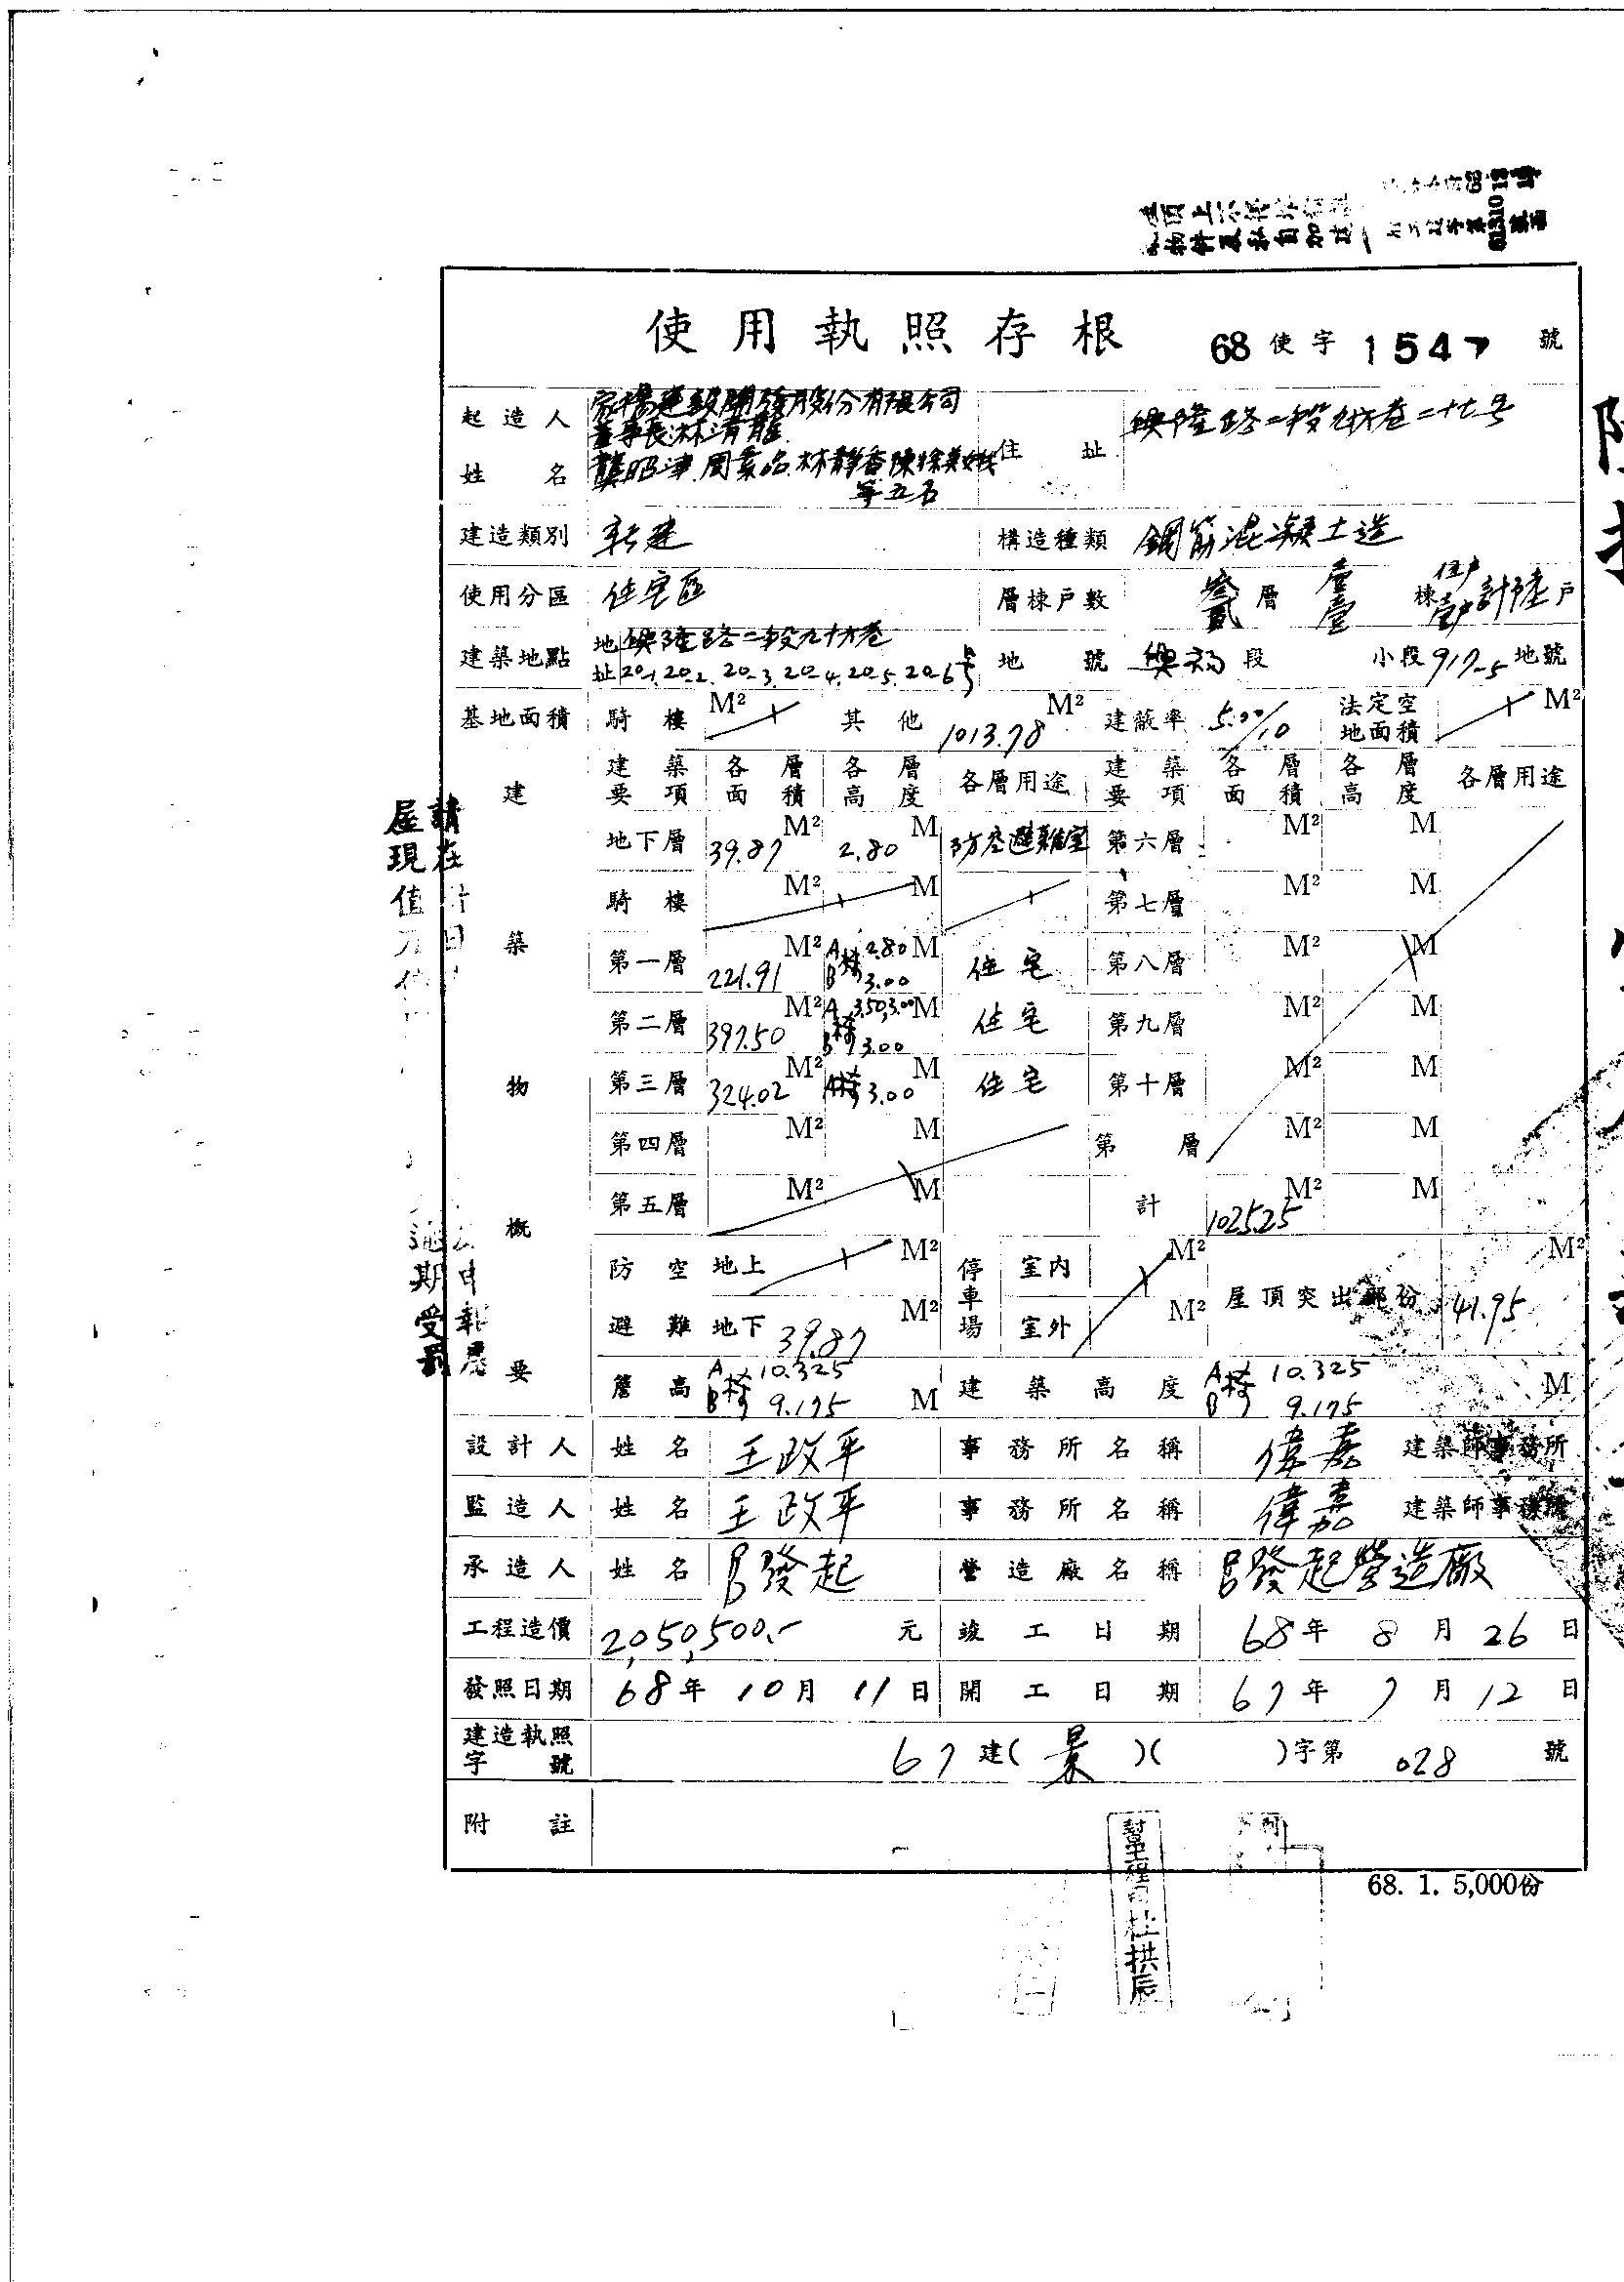 使用執照存根 68使字1547號
起造人姓名 家橋建設開發股份有限公司
董事長林清龍
龔昭津.周素品.林靜香陳徐美娥
等五名
住址 興隆路二段九十六巷二十七号
建造類別 新建 構造種類 鋼筋混凝土造
使用分區 住宅區 層棟戶數 叁貳層 壹壹棟 住戶壹戶計陸戶
建築地點 地址 興隆路二段九十六巷
20-1.20-2.20-3.20-4.20-5.20-6号
地號 興福段 小段917-5地號
基地面積 騎樓 M² 其他 1013.78 M² 建蔽率 法定空地面積 M²
建築物概要
建築要項 各層面積 各層高度 各層用途 建築要項 各層面積 各層高度 各層用途
地下層 39.87 M² 2.80 M 防空避難室 第六層 M² M
騎樓 M² M 第七層 M² M
第一層 221.91 M² A棟 2.80 B 3.00 M 住宅 第八層 M² M
第二層 397.50 M² A棟 3.50,3.00 B 3.00 M 住宅 第九層 M² M
第三層 324.02 M² A棟 3.00 M 住宅 第十層 M² M
第四層 M² M 第 層 M² M
第五層 M² M 計 1025.25 M² M
防空避難 地上 M² 停車場 室內 M² 屋頂突出部份 41.95 M²
地下 39.87 M² 室外 M²
簷高 A棟 10.325 B 9.175 M 建築高度 A棟 10.325 B 9.175 M
設計人 姓名 王政平 事務所名稱 偉嘉 建築師事務所
監造人 姓名 王政平 事務所名稱 偉嘉 建築師事務所
承造人 姓名 發起 營造廠名稱 發起營造廠
工程造價 2,050,500.- 元 竣工日期 68年8月26日
發照日期 68年10月11日 開工日期 67年7月12日
建造執照字號 67建(景)( )字第028號
附註
68. 1. 5,000份
杜拱辰